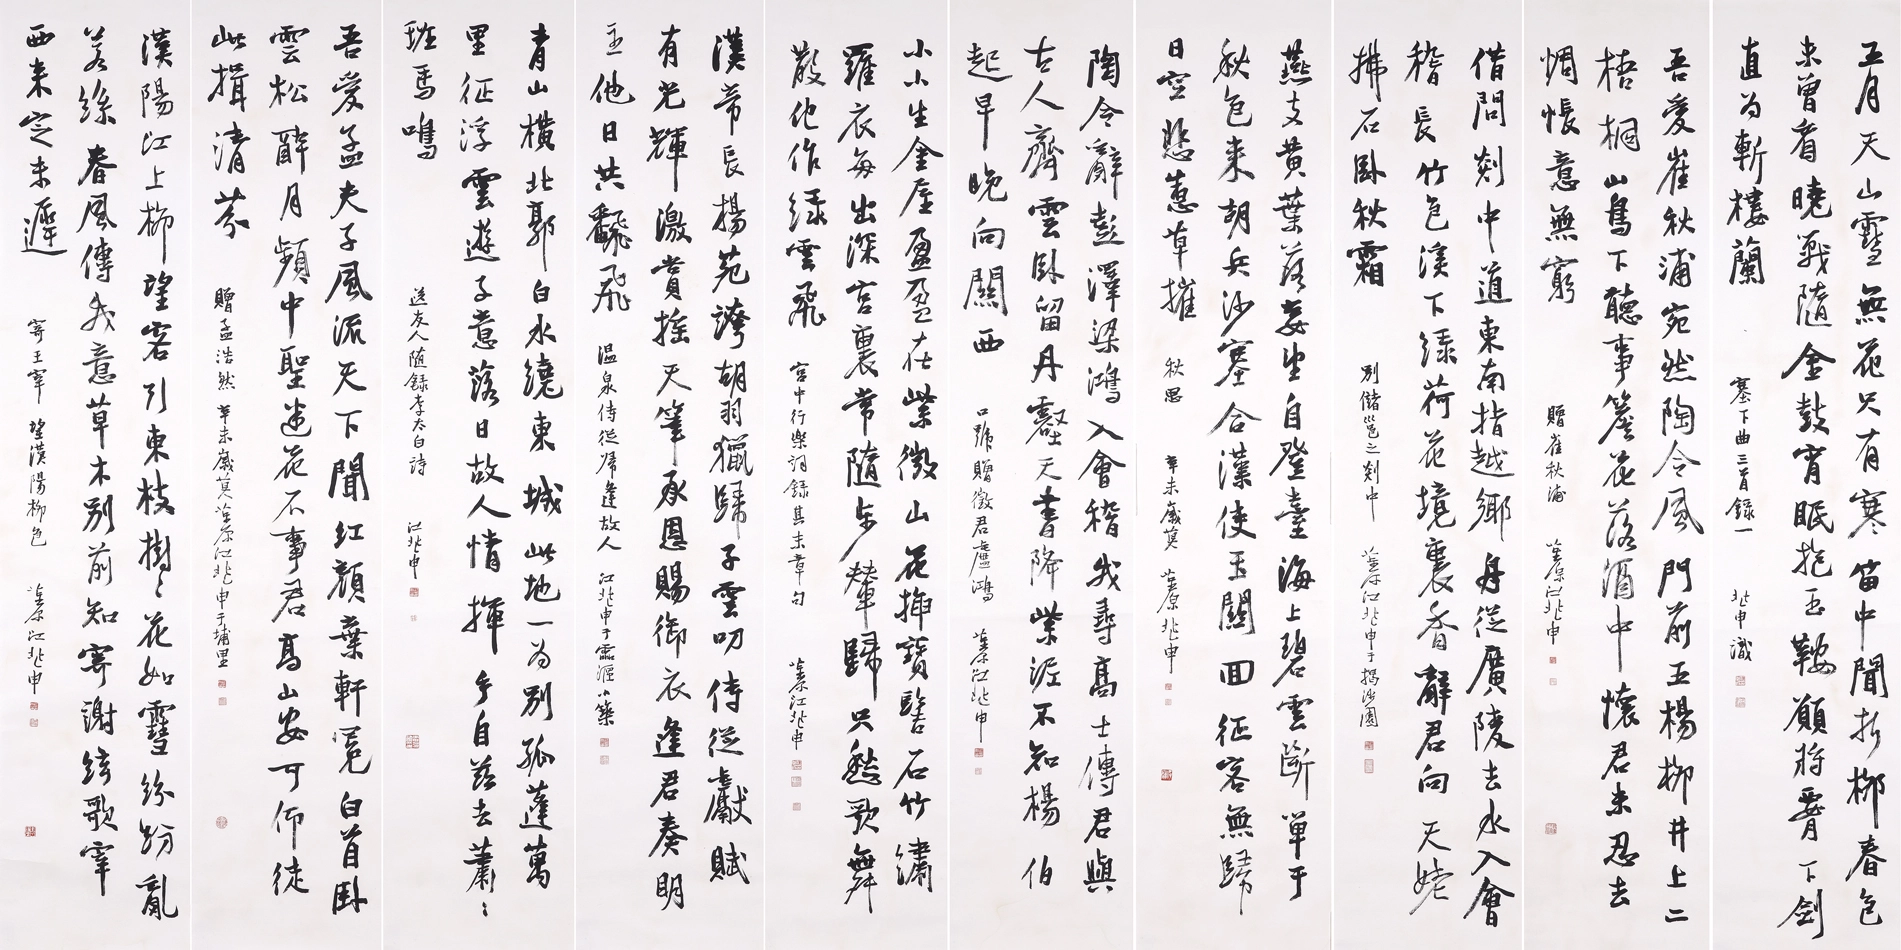 五月天山雪無花只有寒笛中聞折柳春色
未曾看曉戰隨金鼓宵眠抱玉鞍願將腰下劍
直為斬樓蘭
塞下曲三首錄一 兆申識
吾愛崔秋浦宛然陶令風門前五楊柳井上二
梧桐山鳥下聽事簷花落酒中懷君未忍去
惆悵意無窮
贈崔秋浦 椒原江兆申
借問剡中道東南指越鄉舟從廣陵去水入會
稽長竹色溪下綠荷花境裏香辭君向天姥
拂石臥秋霜
別儲邕之剡中 椒原江兆申于揭涉園
燕支黃葉落妾望自登臺海上碧雲斷單于
秋色來胡兵沙塞合漢使玉關回征客無歸
日空悲蕙草摧
秋思 辛未歲莫 椒原兆申
陶令辭彭澤梁鴻入會稽我尋高士傳君與
古人齊雲臥留丹壑天書降紫泥不知楊伯
起早晚向關西
口號贈徵君盧鴻 椒原江兆申
小小生金屋盈盈在紫微山花插寶髻石竹繡
羅衣每出深宮裏常隨步輦歸只愁歌舞
散化作綵雲飛
宮中行樂詞錄其末章句 椒原江兆申
漢帝長楊苑誇胡羽獵歸子雲叨侍從獻賦
有光輝激賞搖天筆承恩賜御衣逢君奏明
主他日共翻飛
溫泉侍從歸逢故人 江兆申于靈漚小築
青山橫北郭白水繞東城此地一為別孤蓬萬
里征浮雲遊子意落日故人情揮手自茲去蕭〻
班馬鳴
送友人隨錄李太白詩 江兆申
吾愛孟夫子風流天下聞紅顏棄軒冕白首臥
雲松醉月頻中聖迷花不事君高山安可仰徒
此揖清芬
贈孟浩然 辛未歲莫椒原江兆申于埔里
漢陽江上柳望客引東枝樹〻花如雪紛紛亂
若絲春風傳我意草木別前知寄謝絃歌宰
西來定未遲
寄王宰 望漢陽柳色 椒原江兆申